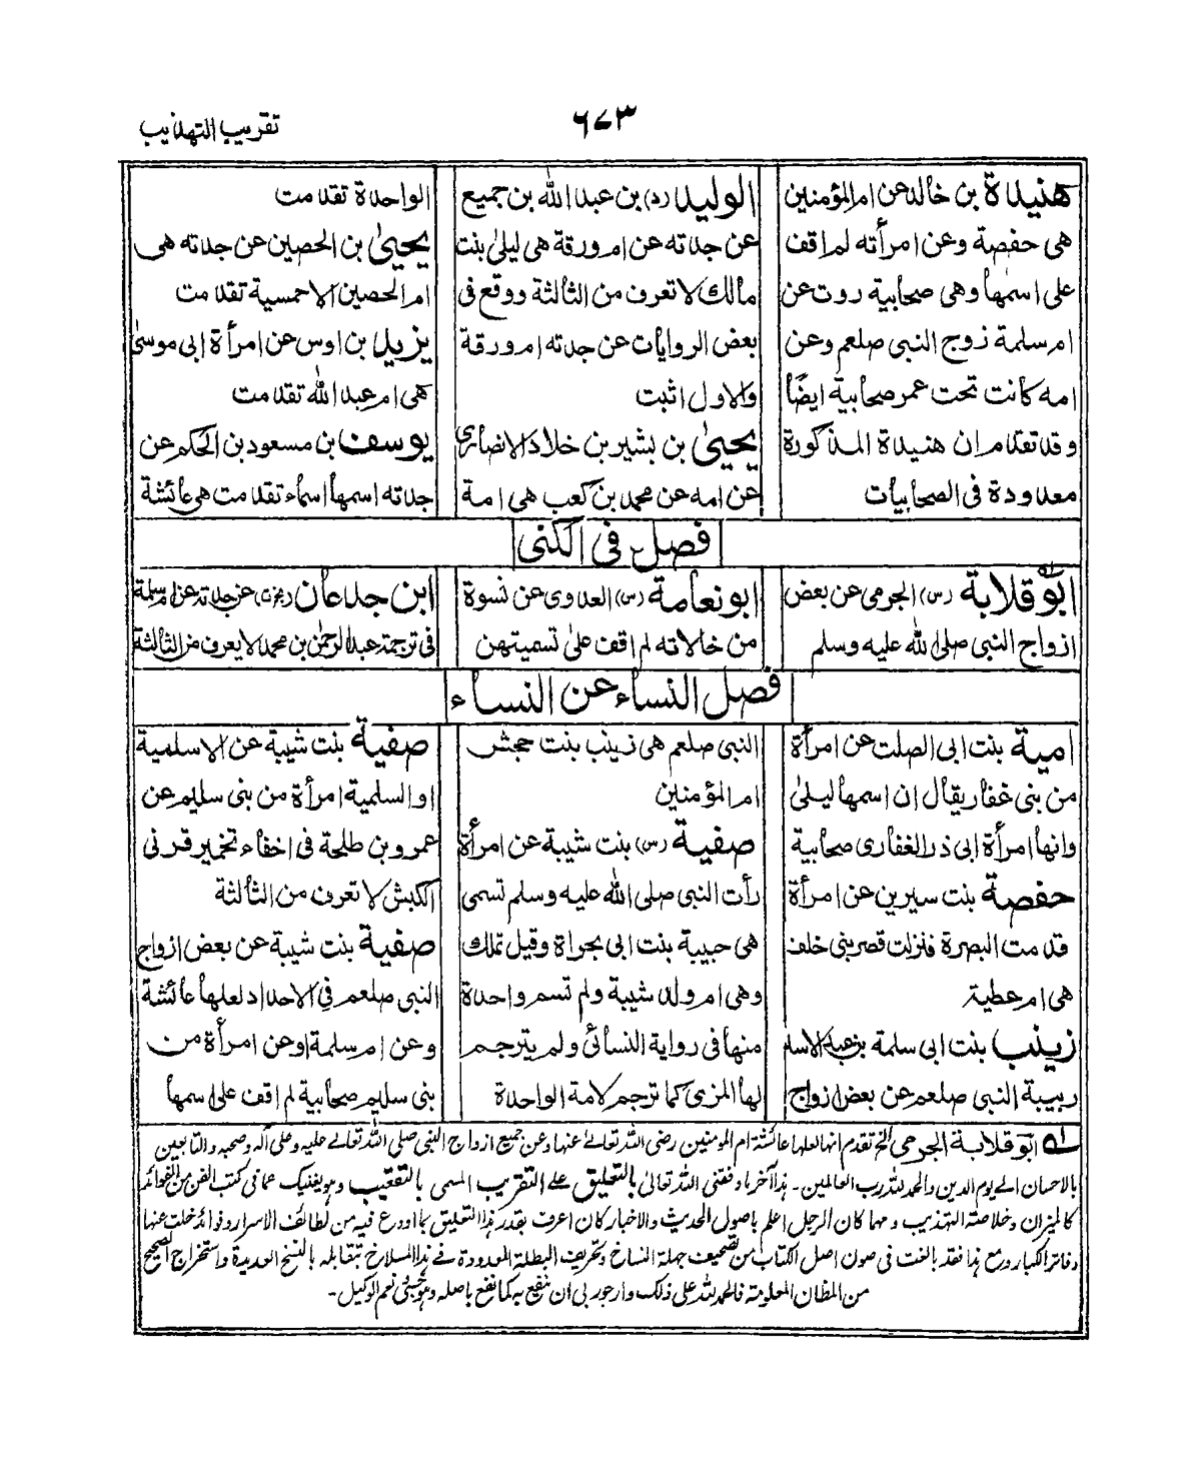 تقريب التهذيب
٦٧٣
هنيدة بن خالد عن ام المؤمنين
هى حفصة وعن امرأته لم اقف
على اسمها وهى صحابية روت عن
ام سلمة زوج النبى صلعم وعن
امه كانت تحت عمر صحابية ايضًا
وقد تقدم ان هنيدة المذكورة
معدودة فى الصحابيات
الوليد (د) بن عبد الله بن جميع
عن جدته عن ام ورقة هى ليلىٰ بنت
مالك لا تعرف من الثالثة ووقع فى
بعض الروايات عن جدته ام ورقة
والاول اثبت
يحيىٰ بن بشير بن خلاد الانصارى
عن امه عن محمد بن كعب هى امة
الواحدة تقدمت
يحيىٰ بن الحصين عن جدته هى
ام الحصين الاحمسية تقدمت
يزيد بن اوس عن امرأة ابى موسىٰ
هى ام عبد الله تقدمت
يوسف بن مسعود بن الحكم عن
جدته اسمها اسماء تقدمت هى عائشة
فصل فى الكنى
ابو قلابة (س) الجرمى عن بعض
ازواج النبى صلى الله عليه وسلم
ابو نعامة (س) العدوى عن نسوة
من خالاته لم اقف علىٰ تسميتهن
ابن جدعان عن جدته عن ام سلمة
فى ترجمة عبد الرحمٰن بن محمد لا يعرف من الثالثة
فصل النساء عن النساء
امية بنت ابى الصلت عن امرأة
من بنى غفار يقال ان اسمها ليلىٰ
وانها امرأة ابى ذر الغفارى صحابية
حفصة بنت سيرين عن امرأة
قدمت البصرة فنزلت قصر بنى خلف
هى ام عطية
زينب بنت ابى سلمة بن عبد الاسد
ربيبة النبى صلعم عن بعض ازواج
النبى صلعم هى زينب بنت جحش
ام المؤمنين
صفية (س) بنت شيبة عن امرأة
رأت النبى صلى الله عليه وسلم تسمى
هى حبيبة بنت ابى بجراة وقيل تملك
وهى ام ولد شيبة ولم تسم واحدة
منها فى رواية النسائى ولم يترجم
لها المزى كما ترجم لامة الواحدة
صفية بنت شيبة عن الاسلمية
او السلمية امرأة من بنى سليم عن
عمرو بن طلحة فى اخفاء تخمير قرنى
الكبش لا تعرف من الثالثة
صفية بنت شيبة عن بعض ازواج
النبى صلعم فى الاحداد لعلها عائشة
وعن ام سلمة اوعن امرأة من
بنى سليم صحابية لم اقف على اسمها
ابو قلابة الجرمى الخ تقدم انها لعلها عائشة ام المومنين رضى الله تعالےٰ عنها وعن جميع ازواج النبى صلى الله تعالے عليه وعلى آله وصحبه والتابعين
بالاحسان الے يوم الدين والحمد لله رب العالمين۔ هذا آخر ما وفقنى الله تعالىٰ بالتعليق علے التقريب المسمى بالتعقيب وهو يغنيك عما فى كتب الفن من الفوائد
كالميزان وخلاصة التهذيب ومهما كان الرجل اعلم باصول الحديث والاخبار كان اعرف بقدر هذا التعليق بما اودع فيه من لطائف الاسرار وفوائد خلت عنها
دفاتر الكبار ومع هذا فقد بالغت فى صون اصل الكتاب من تصحيف جملة النساخ وتحريف البطلة المعدودة فے هذا السلاخ بمقابلة بالنسخ العديدة واستخراج الصحيح
من المظان المعلومة فالحمد لله على ذلك وارجو ربى ان ينفع به كما نفع باصله وهو حسبى ونعم الوكيل۔